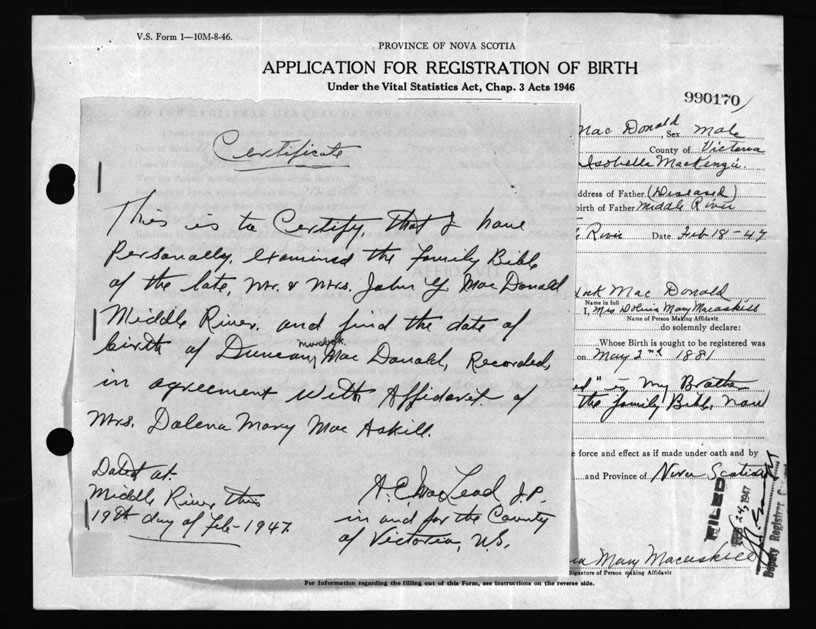 V.S. Form 1—10M-8-46.
PROVINCE OF NOVA SCOTIA
APPLICATION FOR REGISTRATION OF BIRTH
Under the Vital Statistics Act, Chap. 3 Acts 1946
990170
Mac Donald, Sex Male
County of Victoria
Isobella MacKenzie.
ddress of Father (Diseased)
irth of Father Middle River
Date Feb 18-47
Mac Donald
Name in full
I, Mrs Dolina Mary Macaskill
Name of Person Making Affidavit
do solemnly declare:
Whose Birth is sought to be registered was
on May 2nd 1881
ed" is my Brother
the family Bible, now
e force and effect as if made under oath and by
and Province of Nova Scotia
FILED
FEB 24, 1947
Deputy Registrar
Mary Macaskill
Signature of Person making Affidavit
For Information regarding the filling out of this Form, see Instructions on the reverse side.
Certificate
This is to Certify, that I have
Personally, examined the family Bible
of the late, Mr. & Mrs. John Y. MacDonald
Middle River, and find the date of
birth of Duncan Murdock Mac Donald, Recorded,
in agreement with Affidavit of
Mrs. Dolena Mary Mac Askill.
Dated at
Middle River, this
19th day of Feb-1947.
A. C. MacLeod J.P.
in and for the County
of Victoria, N.S.